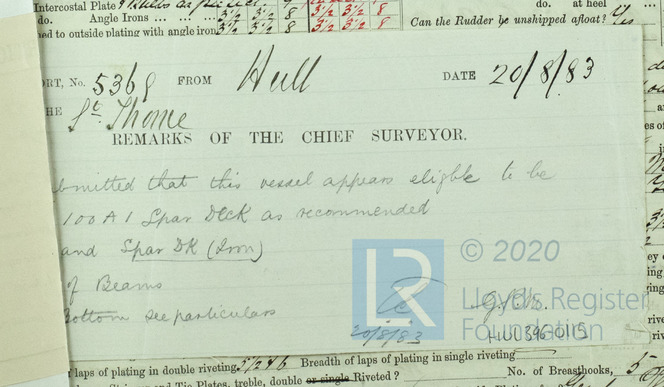 Intercostal Plate
do. at heel
do. Angle Irons 3½ 3½ 8 3½ 3½ 8
Can the Rudder be unshipped afloat? Yes
ed to outside plating with angle iron 3½ 3½ 8 3½ 3½ 8
ORT, No. 5368 FROM Hull DATE 20/8/83
HE St. Thome
REMARKS OF THE CHIEF SURVEYOR.
bmitted that this vessel appears eligble to be
100 A 1 Spar Deck as recommended
and Spar DK (Iron)
of Beams
Bottom see particulars
20/8/83
© 2020
LR
Lloyd's Register
Foundation
HUL0396-0115
laps of plating in double riveting Breadth of laps of plating in single riveting
No. of Breasthooks, 5
and Tie Plates, treble, double or single Riveted?